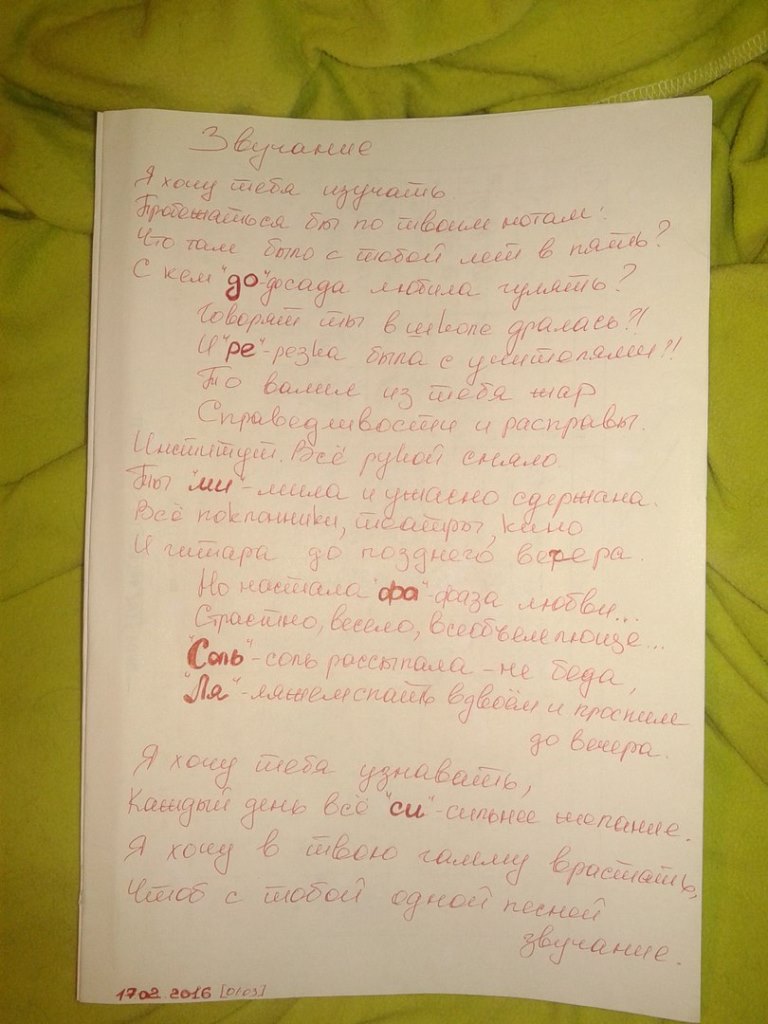 Звучание
Я хочу тебя изучать.
Пробежаться бы по твоим нотам:
Что там было с тобой лет в пять?
С кем "до"-досада любила гулять?
Говорят ты в школе дралась?!
И "ре"-резка была с учителями!!
То валил из тебя жар
Справедливости и расправы.
Институт. Всё рукой сняло.
Ты "ми"-мила и ужасно сдержана.
Всё поклонники, театры, кино
И гитара до позднего вечера.
Но настала "фа"-фаза любви...
Страстно, весело, всеобъемлюще...
"Соль"-соль рассыпала - не беда,
"Ля"-ляжем спать вдвоём и проспим
до вечера.
Я хочу тебя узнавать,
Каждый день всё "си"-сильнее желание.
Я хочу в твою гамму врастать,
Чтоб с тобой одной песней
звучание.
17.02.2016 [01:03]